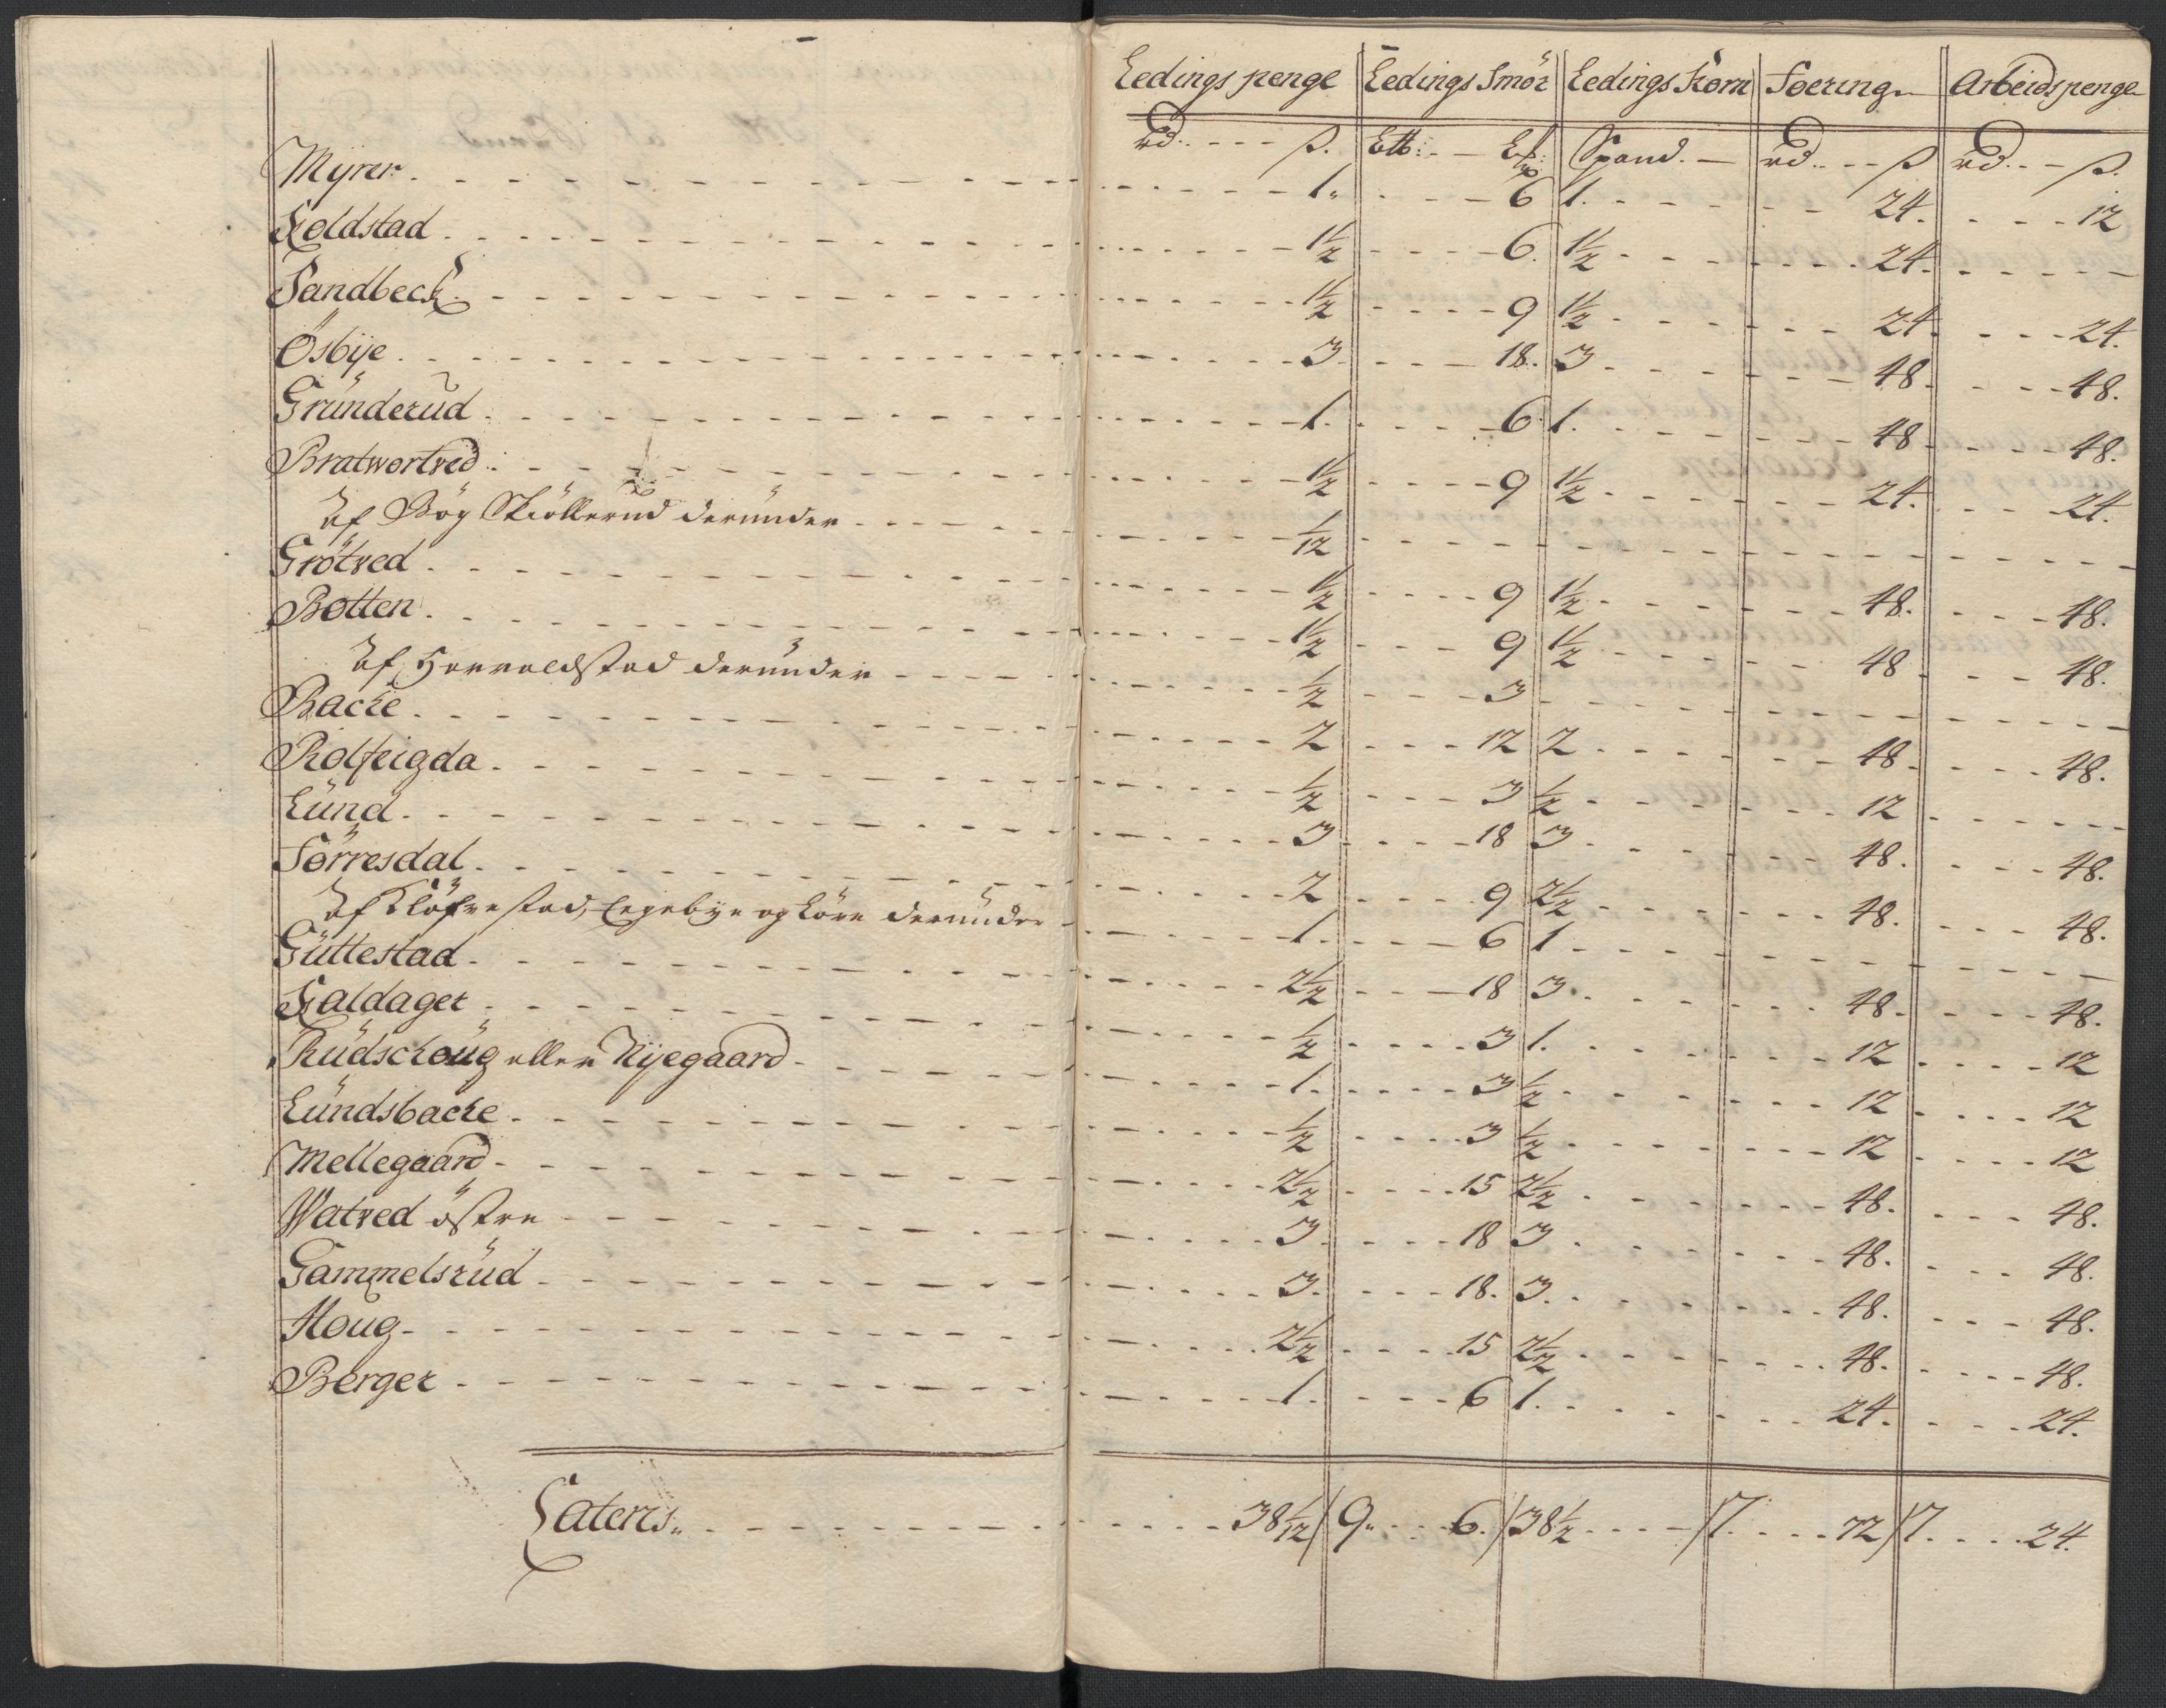 Ledings penge Ledings Smör Ledings Korn Foering Arbeidspenge
rd. ß. Ltt: Spand. rd. ß rd. ß.
Myrer. 1. 6 1. 24. 12
Koldstad. 1½ 6. 1½ 24.
Sandbeck. 1½ 9 1½ 24. 24.
Ösbye. 3. 18. 3 48. 48.
Gründerud. 1. 6 1. 48 48.
Bratwortved. 1½ 9 1½ 24. 24.
Af Bög Skiöllerud derunder 1/12
Grötved. 1½ 9 1½ 48. 48.
Botten. 1½ 9 1½ 48 48.
Af Harvoldstad derunder ½ 3
Backe. 2 12 2 48 48.
Rolfeigda. ½ 3 ½ 12
Lünd. 3 18 3 48. 48.
Törresdal. 2 9 2½ 48. 48.
Af Klöfvestad, Legebye og Löre derunder 1. 6 1
Güttestad. 2½ 18 3. 48. 48.
Kaldager. ½ 3 1. 12 12
Rüdschoüg eller Nyegaard. 1. 3 ½ 12 12
Lündsbacke. ½ 3 ½ 12 12
Mellegaard. 2½ 15 2½ 48. 48.
Watved östre 3. 18 3 48. 48.
Gammelsrüd. 3. 18. 3. 48. 48.
Houg. 2½ 15 2½ 48. 48.
Berger. 1. 6 1. 24. 24.
Lateris. 38 1/12 9. 6. 38½ 7. 72 7. 24.